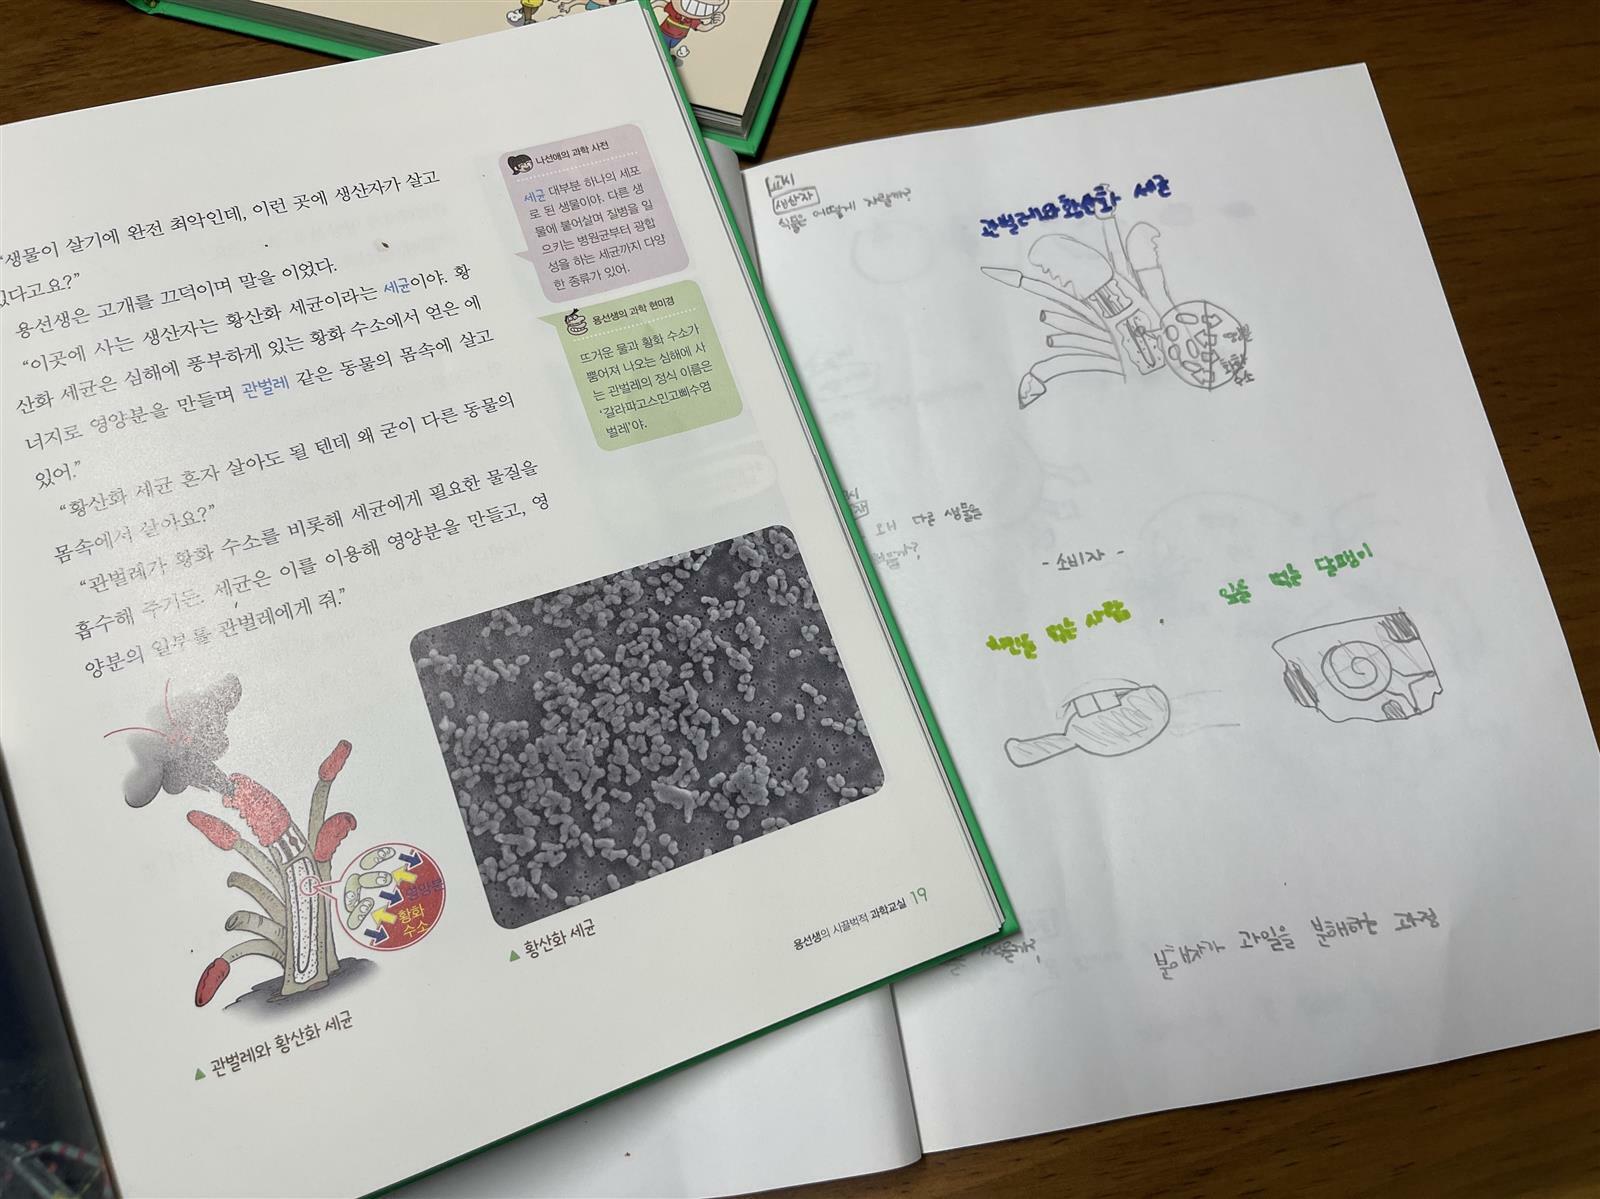 "생물이 살기에 완전 최악인데, 이런 곳에 생산자가 살고
있다고요?"
용선생은 고개를 끄덕이며 말을 이었다.
"이곳에 사는 생산자는 황산화 세균이라는 세균이야. 황
산화 세균은 심해에 풍부하게 있는 황화 수소에서 얻은 에
너지로 영양분을 만들며 관벌레 같은 동물의 몸속에 살고
있어."
"황산화 세균 혼자 살아도 될 텐데 왜 굳이 다른 동물의
몸속에서 살아요?"
"관벌레가 황화 수소를 비롯해 세균에게 필요한 물질을
흡수해 주거든. 세균은 이를 이용해 영양분을 만들고, 영
양분의 일부를 관벌레에게 줘."
나선애의 과학 사전
세균 대부분 하나의 세포
로 된 생물이야. 다른 생
물에 붙어살며 질병을 일
으키는 병원균부터 광합
성을 하는 세균까지 다양
한 종류가 있어.
용선생의 과학 현미경
뜨거운 물과 황화 수소가
뿜어져 나오는 심해에 사
는 관벌레의 정식 이름은
'갈라파고스민고삐수염
벌레'야.
영양분
황화
수소
▲ 관벌레와 황산화 세균
▲ 황산화 세균
용선생의 시끌벅적 과학교실 19
교시
생산자
식물은 어떻게 자랄까?
관벌레와 황산화 세균
황화
수소
왜 다른 생물을
- 소비자 -
먹는 사람
먹는 달팽이
분해자가 과일을 분해하는 과정